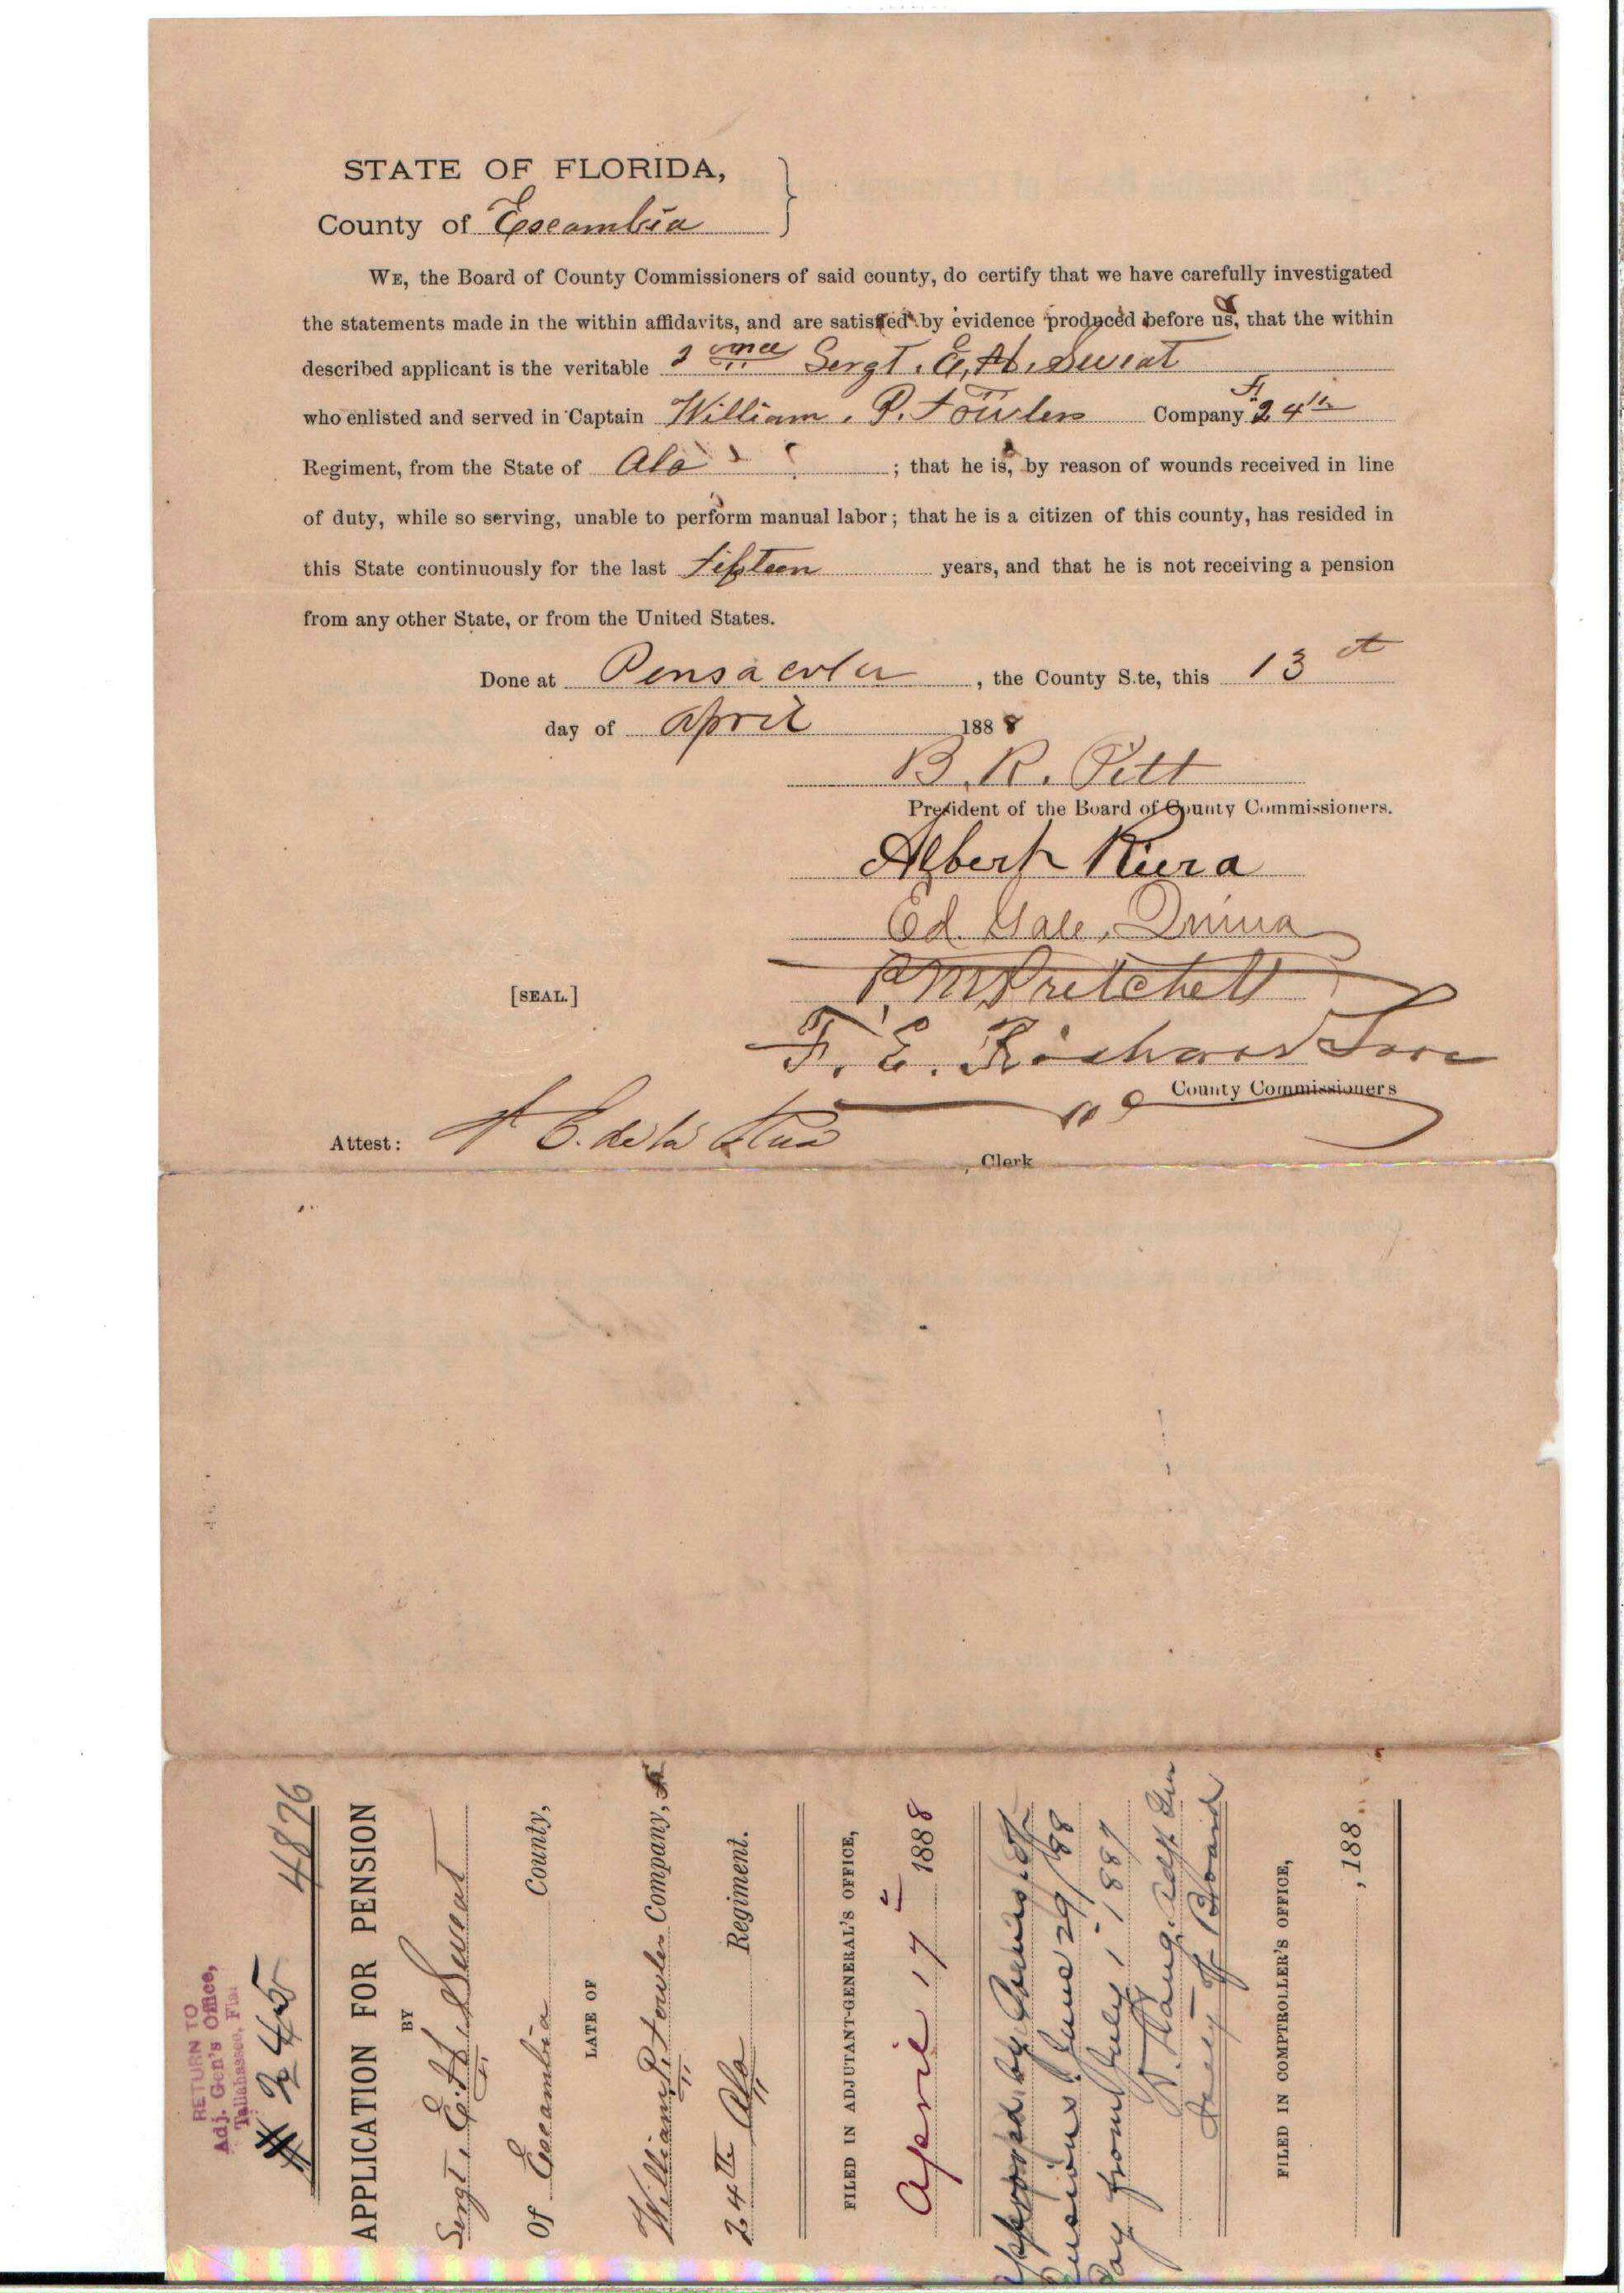 STATE OF FLORIDA,
County of Escambia
WE, the Board of County Commissioners of said county, do certify that we have carefully investigated
the statements made in the within affidavits, and are satisfied by evidence produced before us, that the within
described applicant is the veritable Sergt. E. H. Sweat
who enlisted and served in Captain William. P. Fowlers Company F. 24th
Regiment, from the State of Ala ; that he is, by reason of wounds received in line
of duty, while so serving, unable to perform manual labor; that he is a citizen of this county, has resided in
this State continuously for the last fifteen years, and that he is not receiving a pension
from any other State, or from the United States.
Done at Pensacola, the County S.te, this 13
day of April 1888
B. R. Pitt
President of the Board of County Commissioners.
Albert Riera
Ed. Gale
P. M. Pritchett
[SEAL.]
F. E. Richardson
County Commissioners
Attest:
, Clerk
RETURN TO
Adj. Gen's Office,
Tallahassee, Fla.
# 245 4876
APPLICATION FOR PENSION
BY
Sergt. E. H. Sweat
Of Escambia County,
LATE OF
William P. Fowler Company, F
24th Ala Regiment.
FILED IN ADJUTANT-GENERAL'S OFFICE,
April 17 1888
Approved by Comrs. of
Pensions June 29/88
Pay from July 1 1887
Lang. Adjt Gen
Secy of Board
FILED IN COMPTROLLER'S OFFICE,
, 188